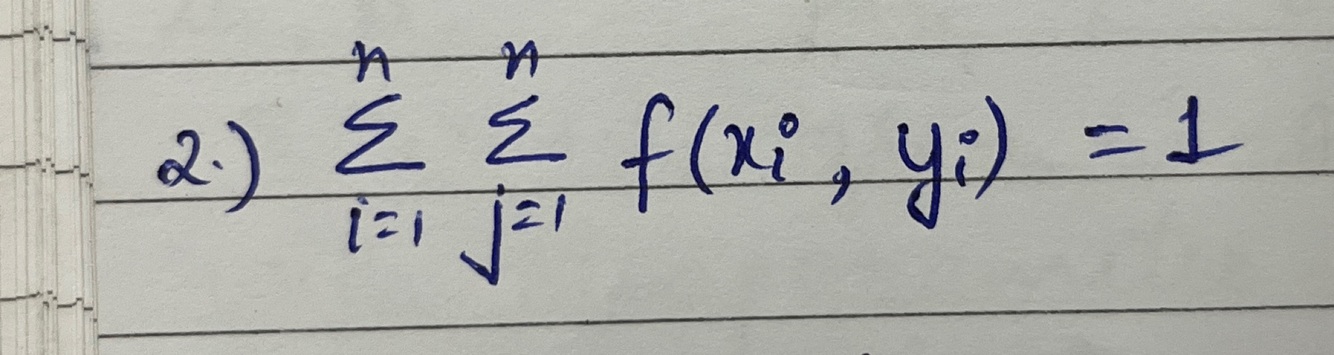 2.) $\sum_{i=1}^{n} \sum_{j=1}^{n} f(x_i, y_i) = 1$